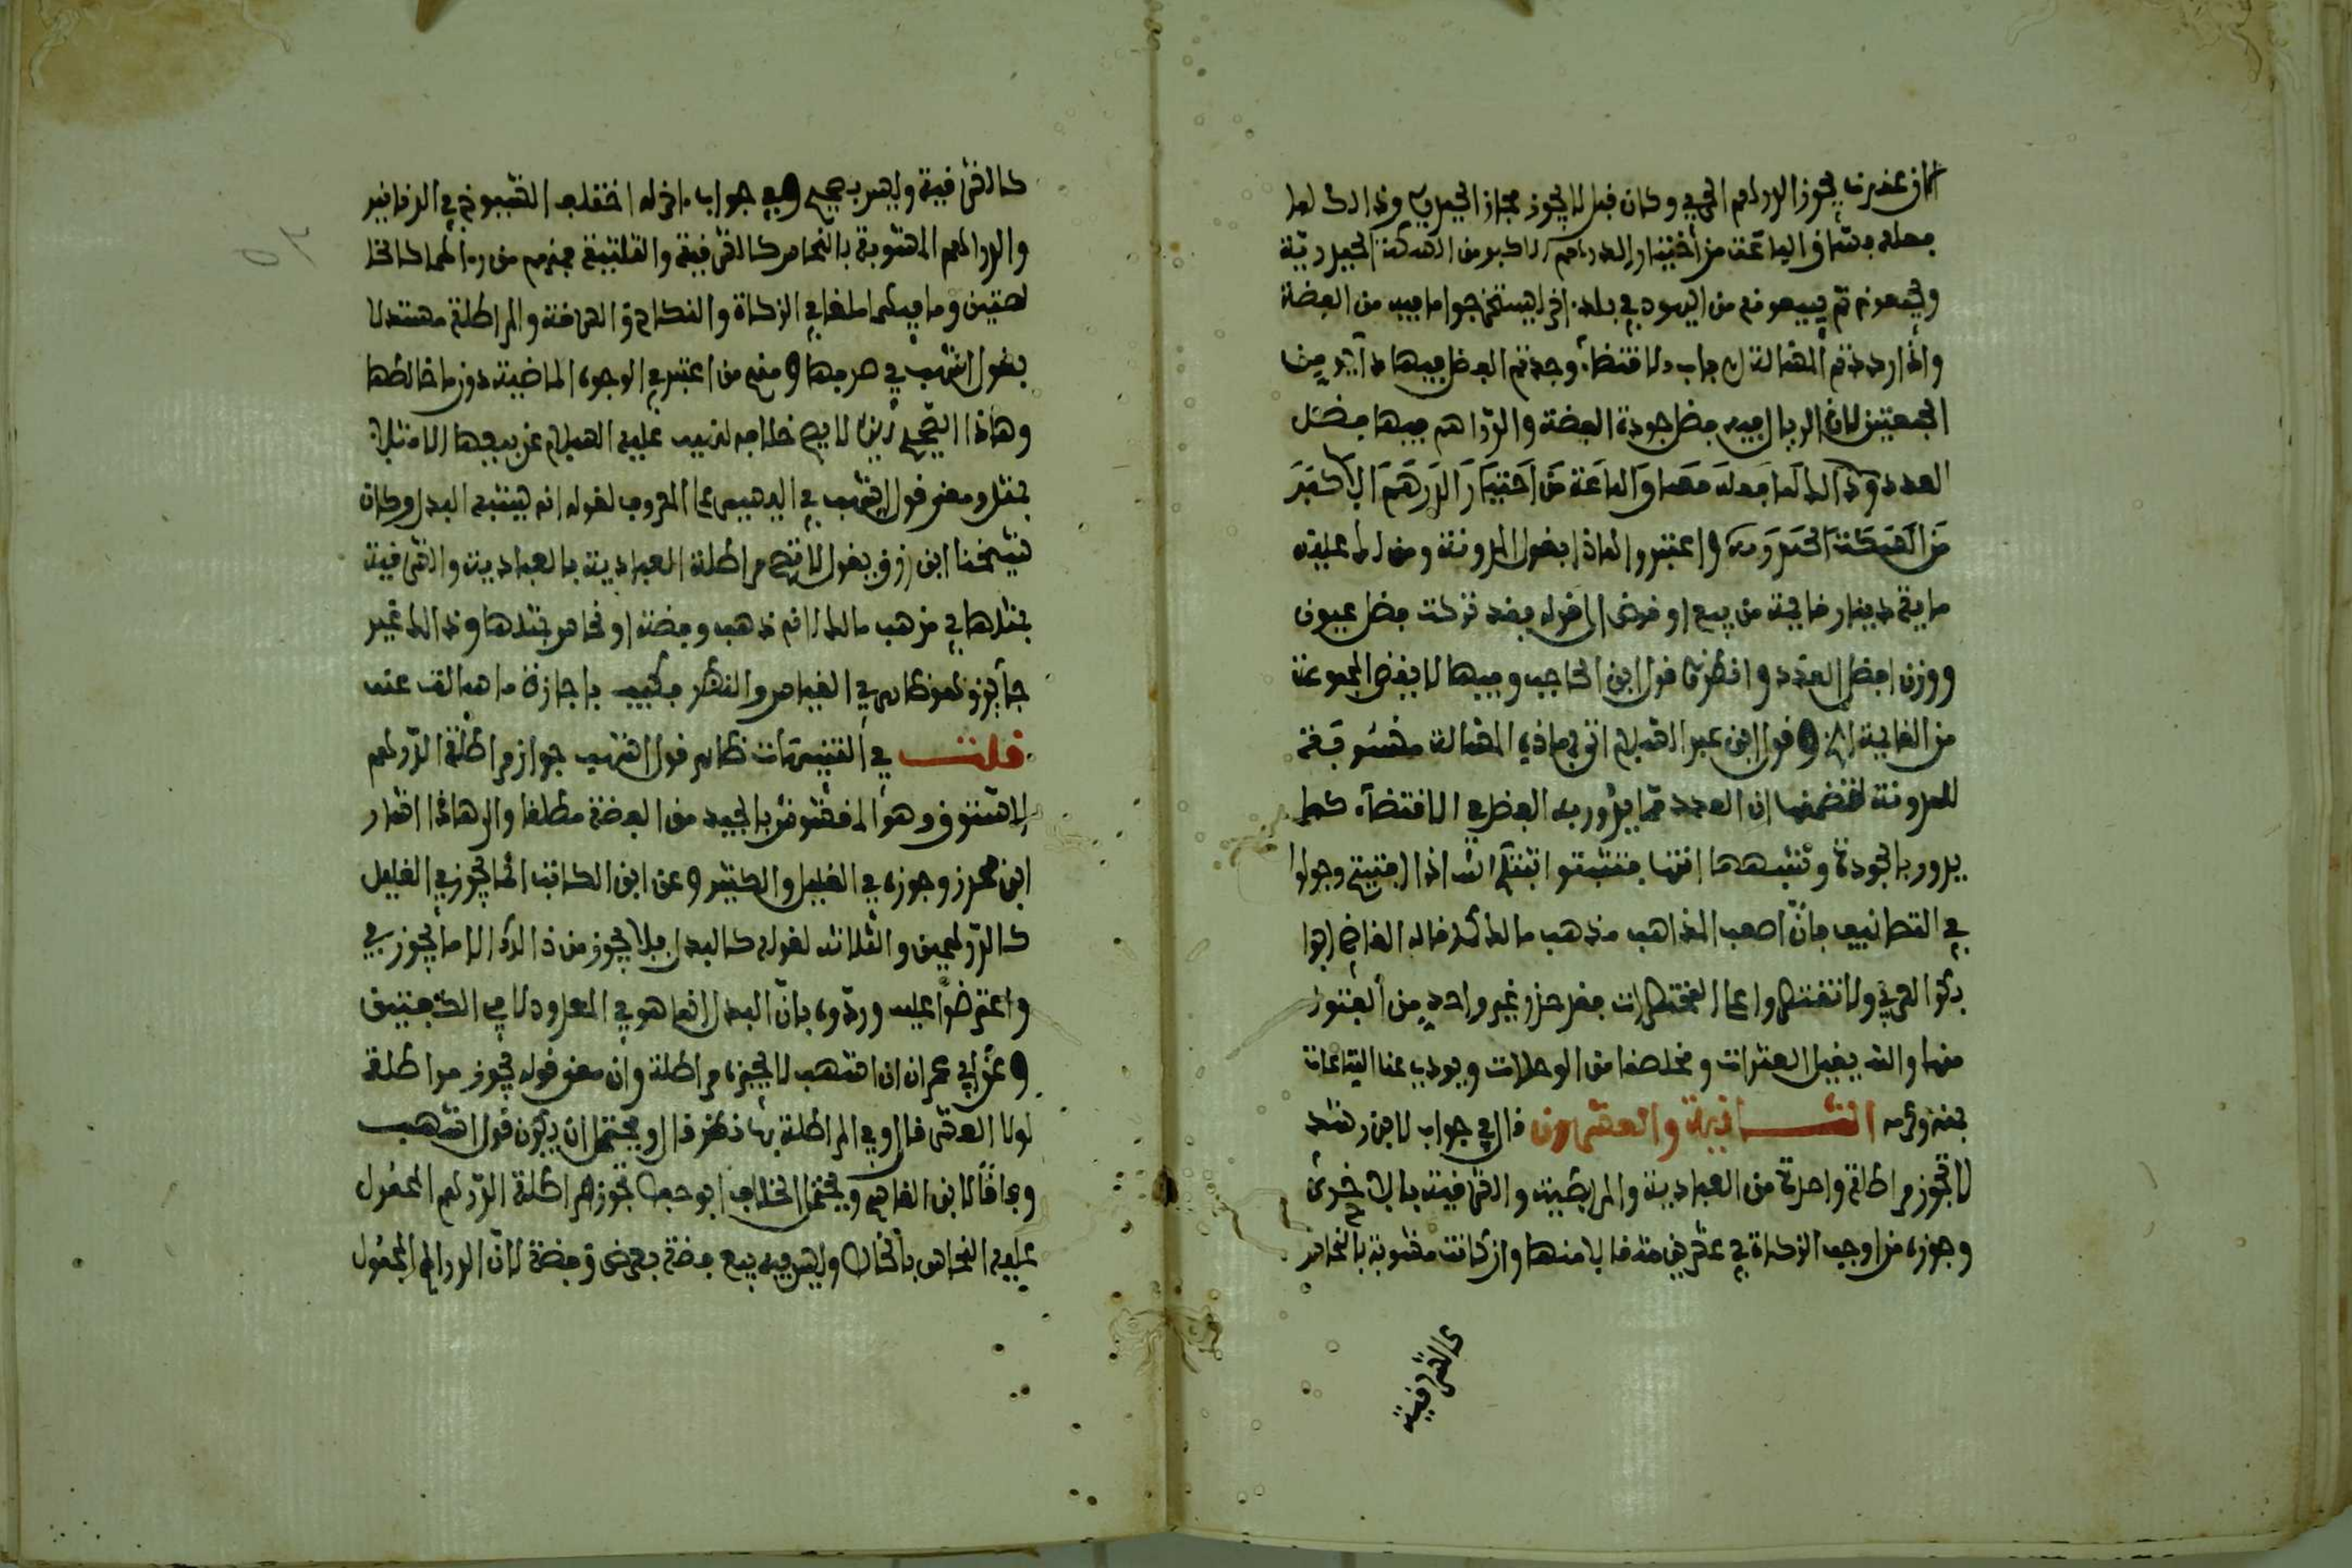 كان عندنا يجوز الدراهم الجري وكان قبل لا يجوز مجاز الجيرية وذالك لما
فعله بعض الباعة من أخيار الدراهم الاكبر من السكة الجيرية
ويجمعونه ثم يبيعونه من اليهود في بلد اخر ليستخرجوا ما فيه من الفضة
واذا رددتم المسالة لباب الاقتضاء وجدتم الفضل فيها داير من
الجهتين لان الريال فيه فضل جودة الفضة والدراهم فيها فضل
العدد وذالك لما فعله بعض الباعة من اختيار الدرهم الاكبر
من السكة الجيرية واعتبروا هاذا بقول المدونة ومن لك عليه
ماية دينار قايمة من بيع او قرض الى قوله فقد تركت فضل عيون
ووزن لفضل العدد وانظر قول ابن الحاجب وفيها لا يقضى المجموعة
من القايمة الخ وقول ابن عبد السلام اتى بهاذه المسالة
للمدونة لتضمنها ان العدد مما يدور به الفضل في الاقتضاء كما
يدور بالجودة وشبهها انتهى فتثبتوا تثبتكم الله اذا افتيتم وجولوا
في التصانيف فان اصعب المذاهب مذهب مالك قاله القاضي ابو
بكر العربي ولا تقتصروا على المختصرات فقد حذر غير واحد من الفتوى
منها والله يقيل العثرات ويخلصنا من الوحلات ويودي عنا التباعات
بمنه وكرمه الثانية والعشرون قال في جواب لابن رشد
لا تجوز مراطلة واحدة من العبادية والمرابطية والشرفية بالاخرى
وجوزه من اوجب الزكاة في عشرين مثقالا منها وان كانت مشوبة بالنحاس
كالشرفية
كالشرفية وليس بصحيح وفي جواب اخر له اختلف الشيوخ في الدنانير
والدراهم المشوبة بالنحاس كالشرفية والثلثية فمنهم من راهما كالخا
لصتين وما فيهما ملغا في الزكاة والنكاح والسرقة والمراطلة مستدلا
بقول اشهب في صرفها ومنهم من اعتبر في الوجوه الماضية دون ما خالطها
وهاذا الصحيح الذي لا يصح خلافه لنهيه عليه السلام عن بيعها الا مثلا
بمثل ومعنى قول اشهب في اليسير على المعروف لقوله انه يشبه البدل وكان
شيخنا ابن رزق يقول لا تصح مراطلة العبادية بالعبادية والشرفية
بمثلها في مذهب مالك لانه ذهب وفضة او نحاس بمثلها وذالك غير
جايز ولعمري في القياس والنظر فكيف باجازة ما سالت عنه
قلت في التنبيهات ظاهر قول اشهب جواز مراطلة الدراهم
الستوق وهو المغشوش بالجيد من الفضة مطلقا والى هاذا اشار
ابن محرز وجوزه في القليل والكثير وعن ابن الكاتب انما يجوز في القليل
كالدرهمين والثلاثة لقوله كالبدل فلا يجوز من ذالك الا ما يجوز في
واعترضوا عليه وردوه بان البدل انما هو في المعدود لا في الكفتين
وعن ابي عمران ان اشهب لا يجيز مراطلة وان معنى قوله يجوز مراطلة
لولا الغش قال وفي المراطلة بها نظر قال ويحتمل ان يكون قول اشهب
وفاقا لابن القاسم ويحتمل الخلاف ابو حفص تجوز مراطلة الدراهم المحمول
عليه النحاس بالخالص وليس فيه بيع فضة بعرض وفضة لان الدراهم المحمول